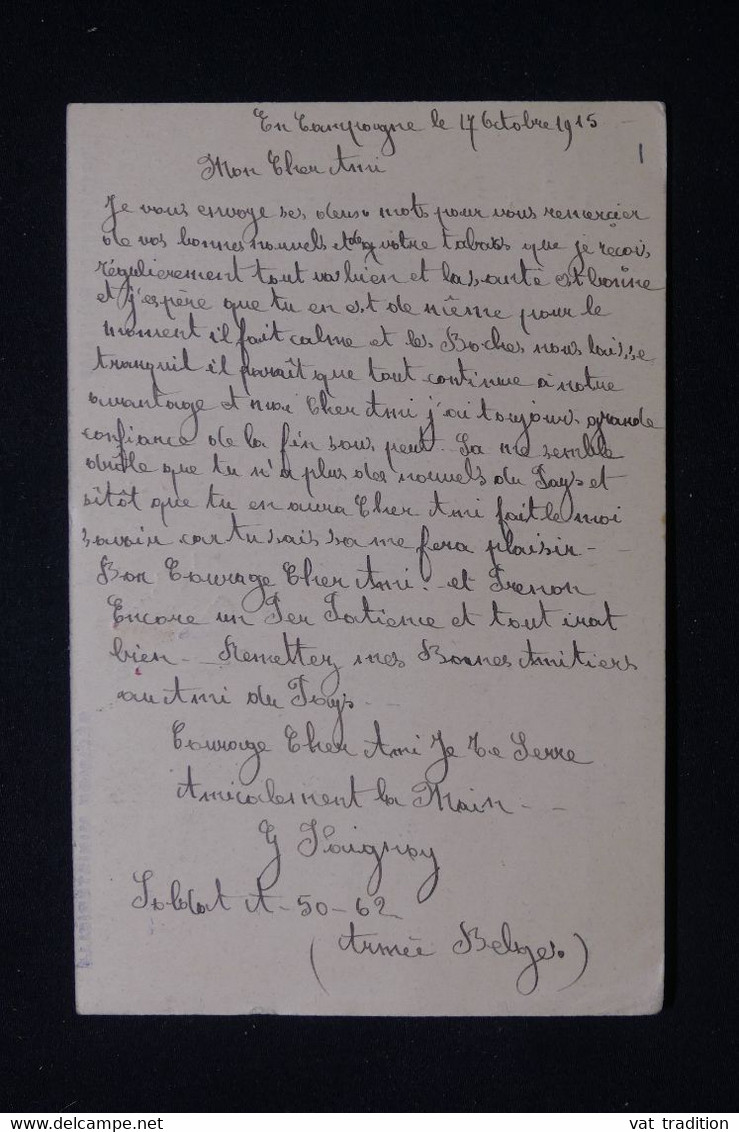 En Campagne le 17 Octobre 1915
Mon Cher Ami
Je vous envoye ses deux mots pour vous remerçier
de vos bonnes nouvels et de votre tabacs que je reçois
régulierement tout vas bien et la santé est bonne
et j'espère que tu en est de même pour le
moment il fait calme et les Boches nous laisse
tranquil il paraît que tout continue à notre
avantage et moi Cher Ami j'ai toujours grande
confiance de la fin sous peut. Sa me semble
drôle que tu n'a plus des nouvels du Pays et
sitôt que tu en aura Cher Ami fait le moi
savoir car tu sais sa me fera plaisir -
Bon Courage Cher Ami! et Prenon
Encore un Peu Patience et tout irat
bien - Remettez mes Bonnes Amitiers
au Ami du Pays -
Courage Cher Ami Je Te Serre
Amicalement la Main - -
G
Soldat A-50-62
(Armée Belge.)
vat tradition